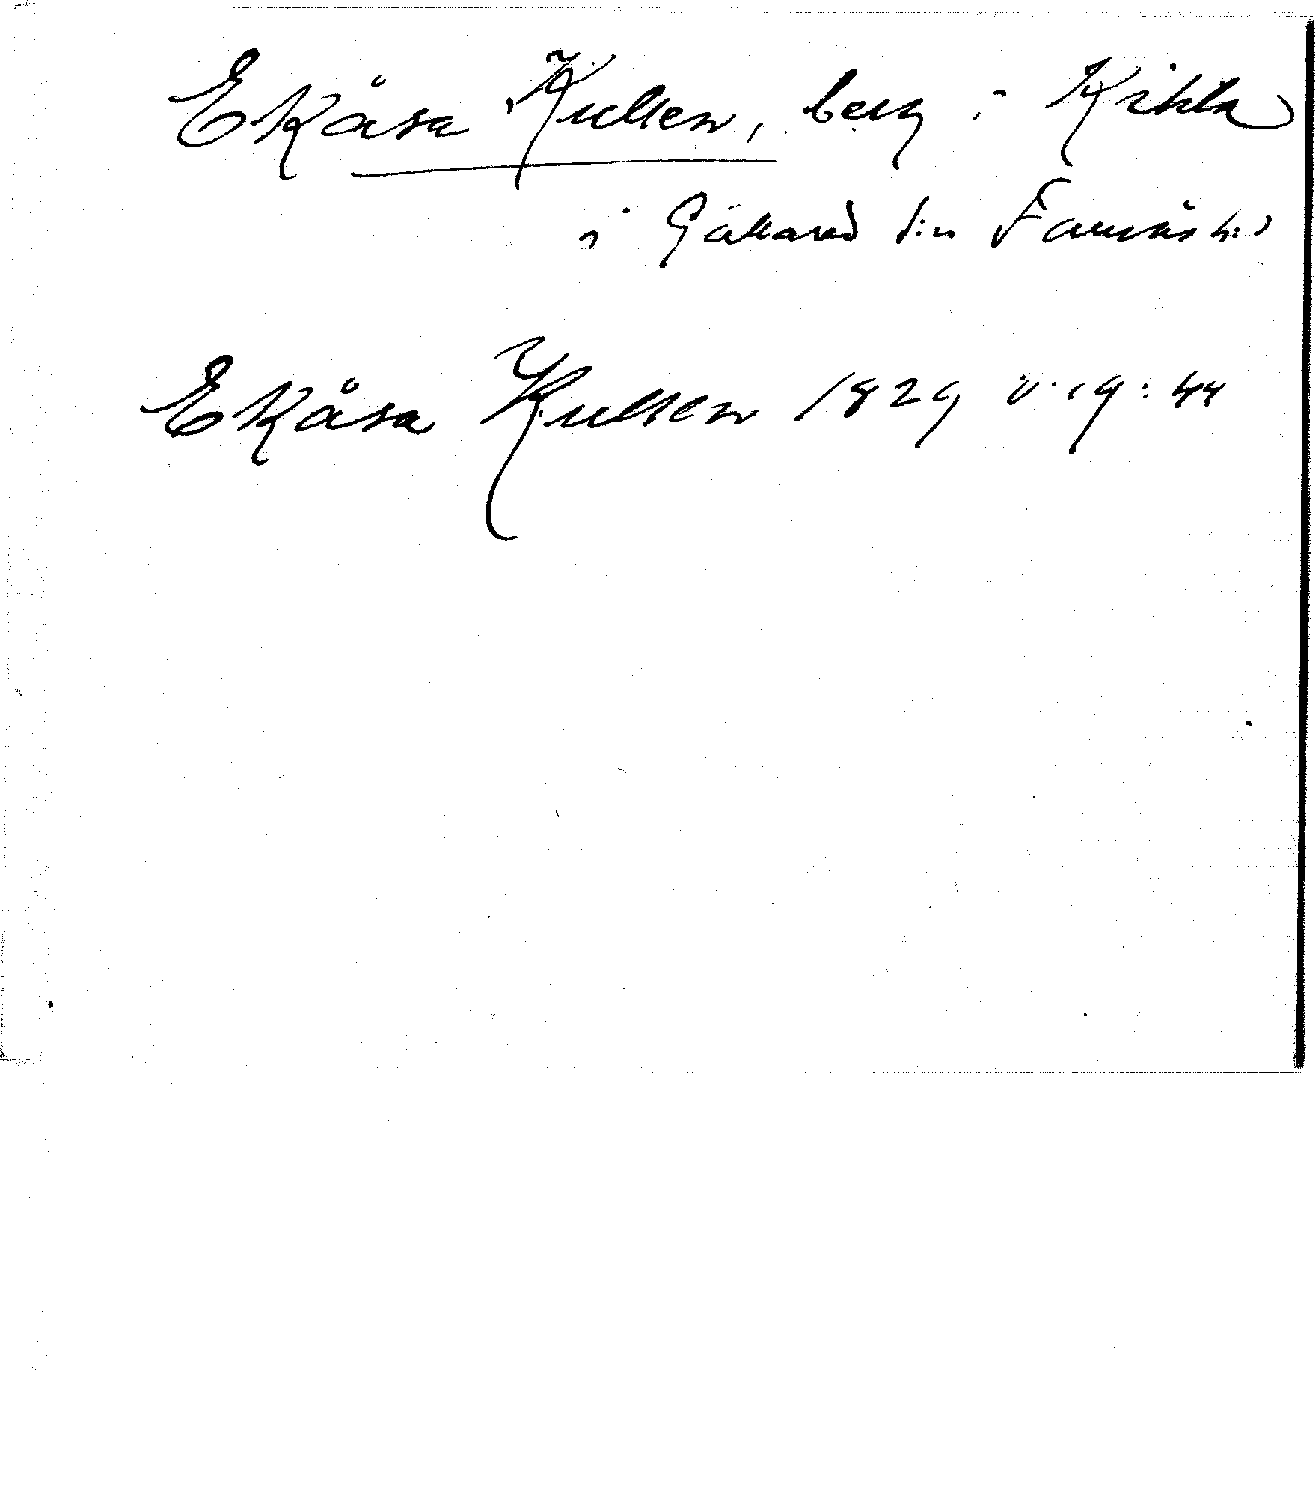 Ekåsa Kullen, berg i Kihla
i Gällared s:n Faurås h:d
Ekåsa Kullen 1829 v. 19: 44